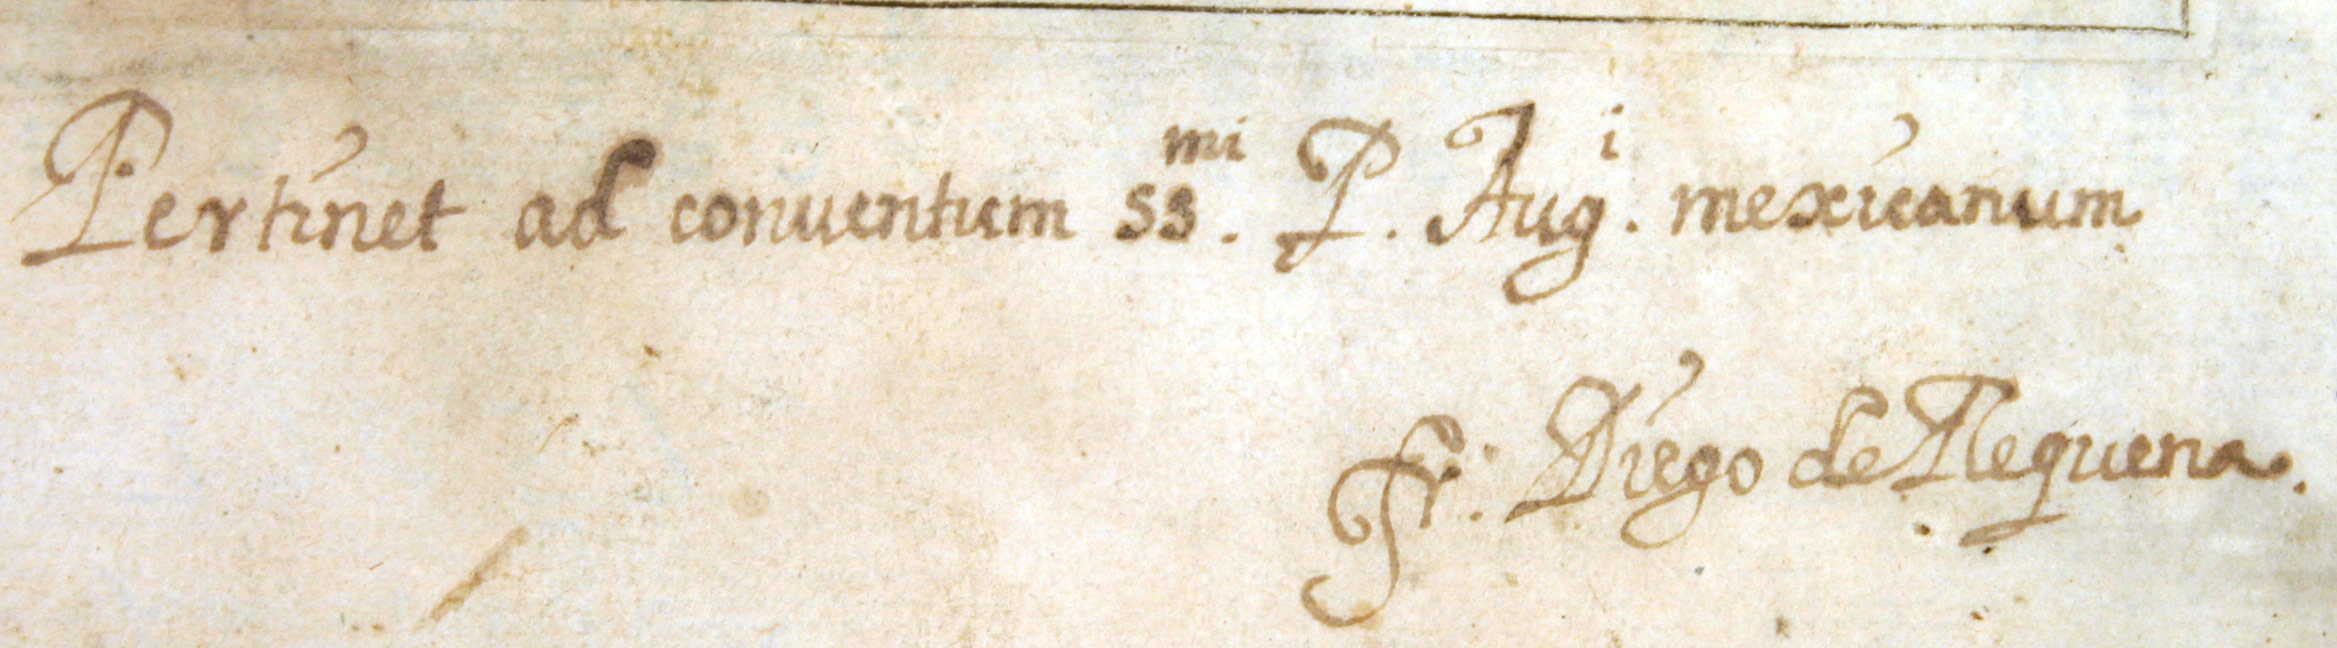 Pertinet ad conuentum ss.mi P. Aug.i mexicanum
Fr. Diego de Requena.